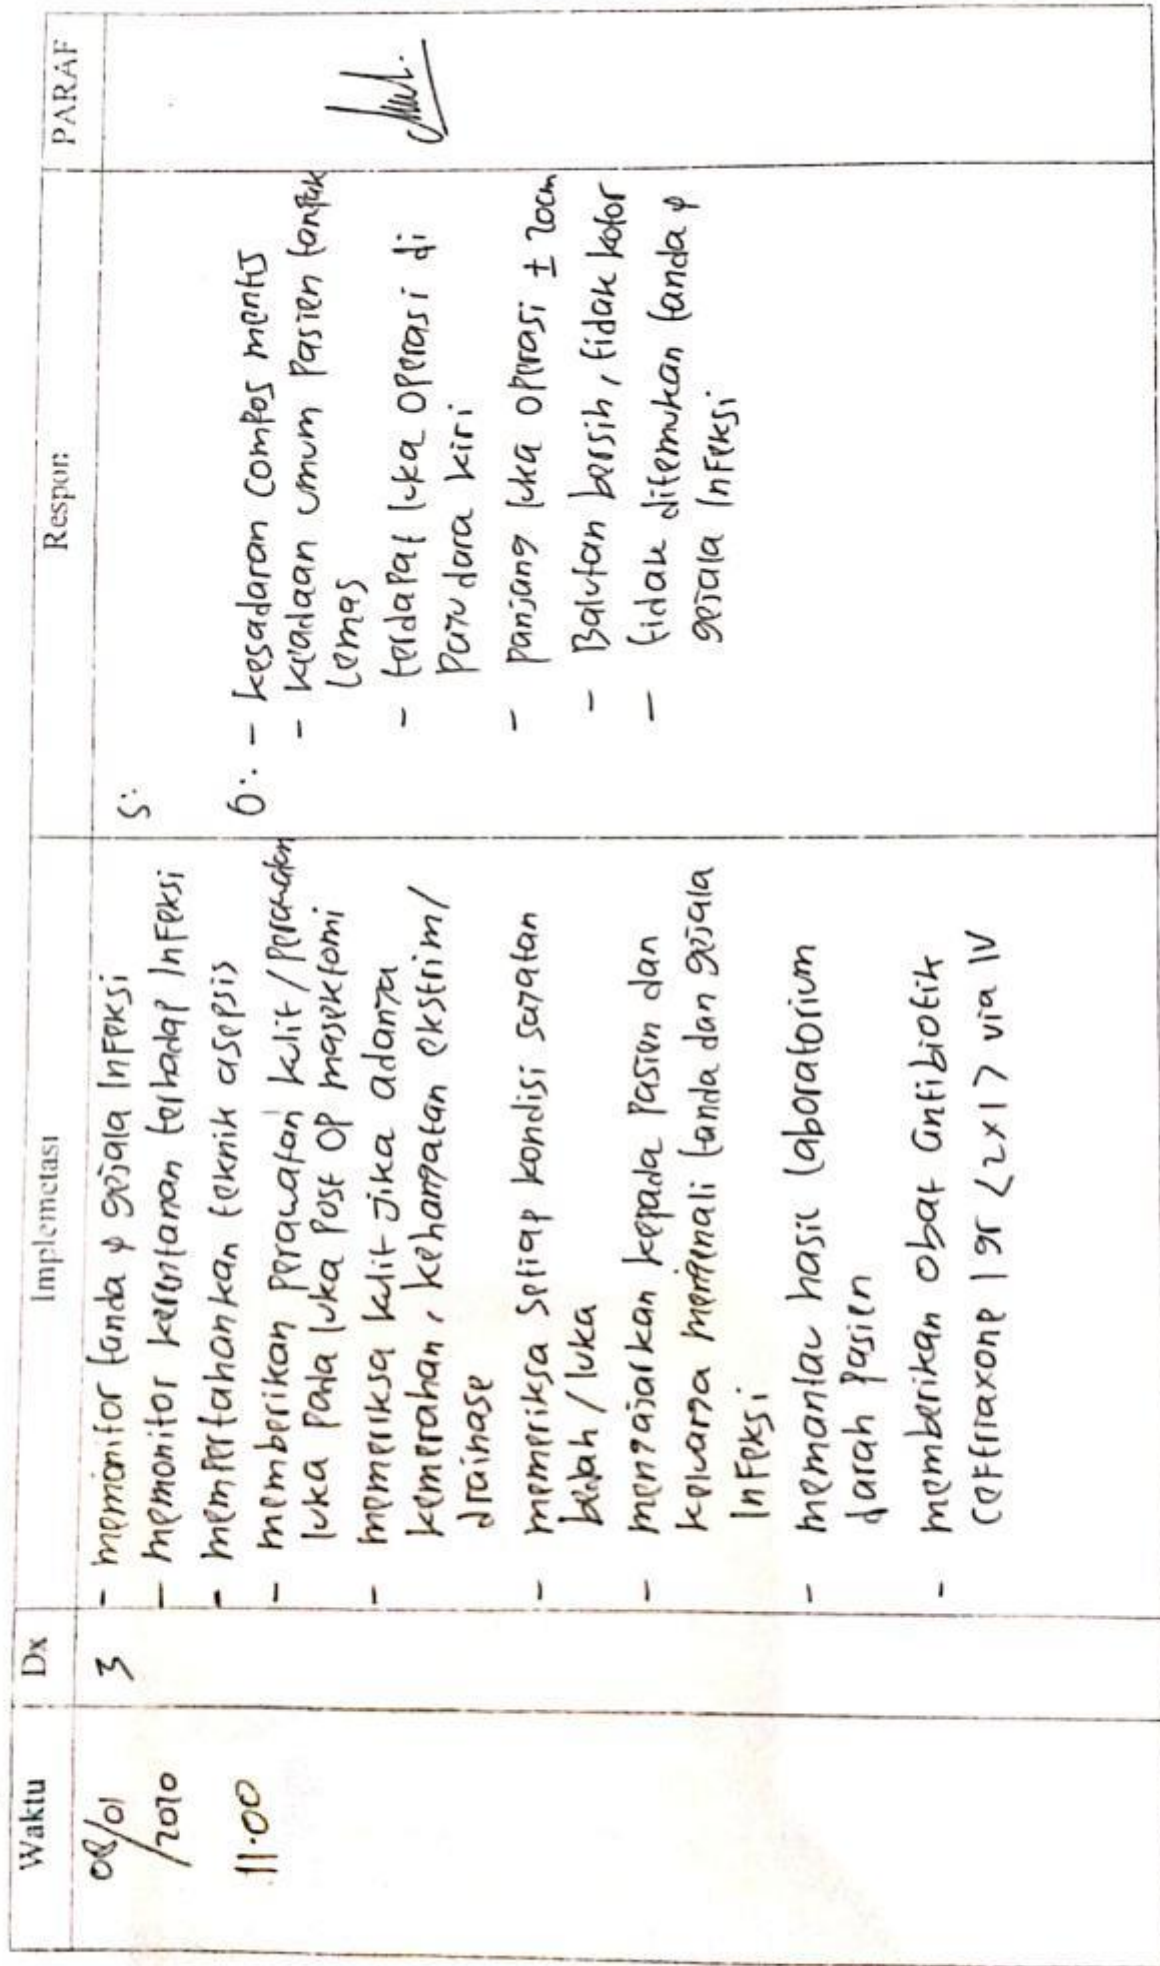 Waktu
Dx
Implemetasi
Respon:
PARAF
08/01
/2020
11.00
3
- memonitor tanda & gejala Infeksi
- memonitor kerentanan terhadap Infeksi
- mempertahankan teknik asepsis
- memberikan perawatan kulit / perawatan
luka pada luka Post OP masektomi
- memeriksa kulit jika adanya
kemerahan, kehangatan ekstrim/
drainase
- memeriksa setiap kondisi sayatan
bedah / luka
- mengajarkan kepada pasien dan
keluarga mengenali tanda dan gejala
Infeksi
- memantau hasil laboratorium
darah pasien
- memberikan obat antibiotik
ceftriaxone 1 gr <2x1> via IV
S:
O: - kesadaran compos mentis
- keadaan umum pasien tampak
lemas
- terdapat luka operasi di
payudara kiri
- panjang luka operasi ± 20cm
- Balutan bersih, tidak kotor
- tidak ditemukan tanda &
gejala Infeksi